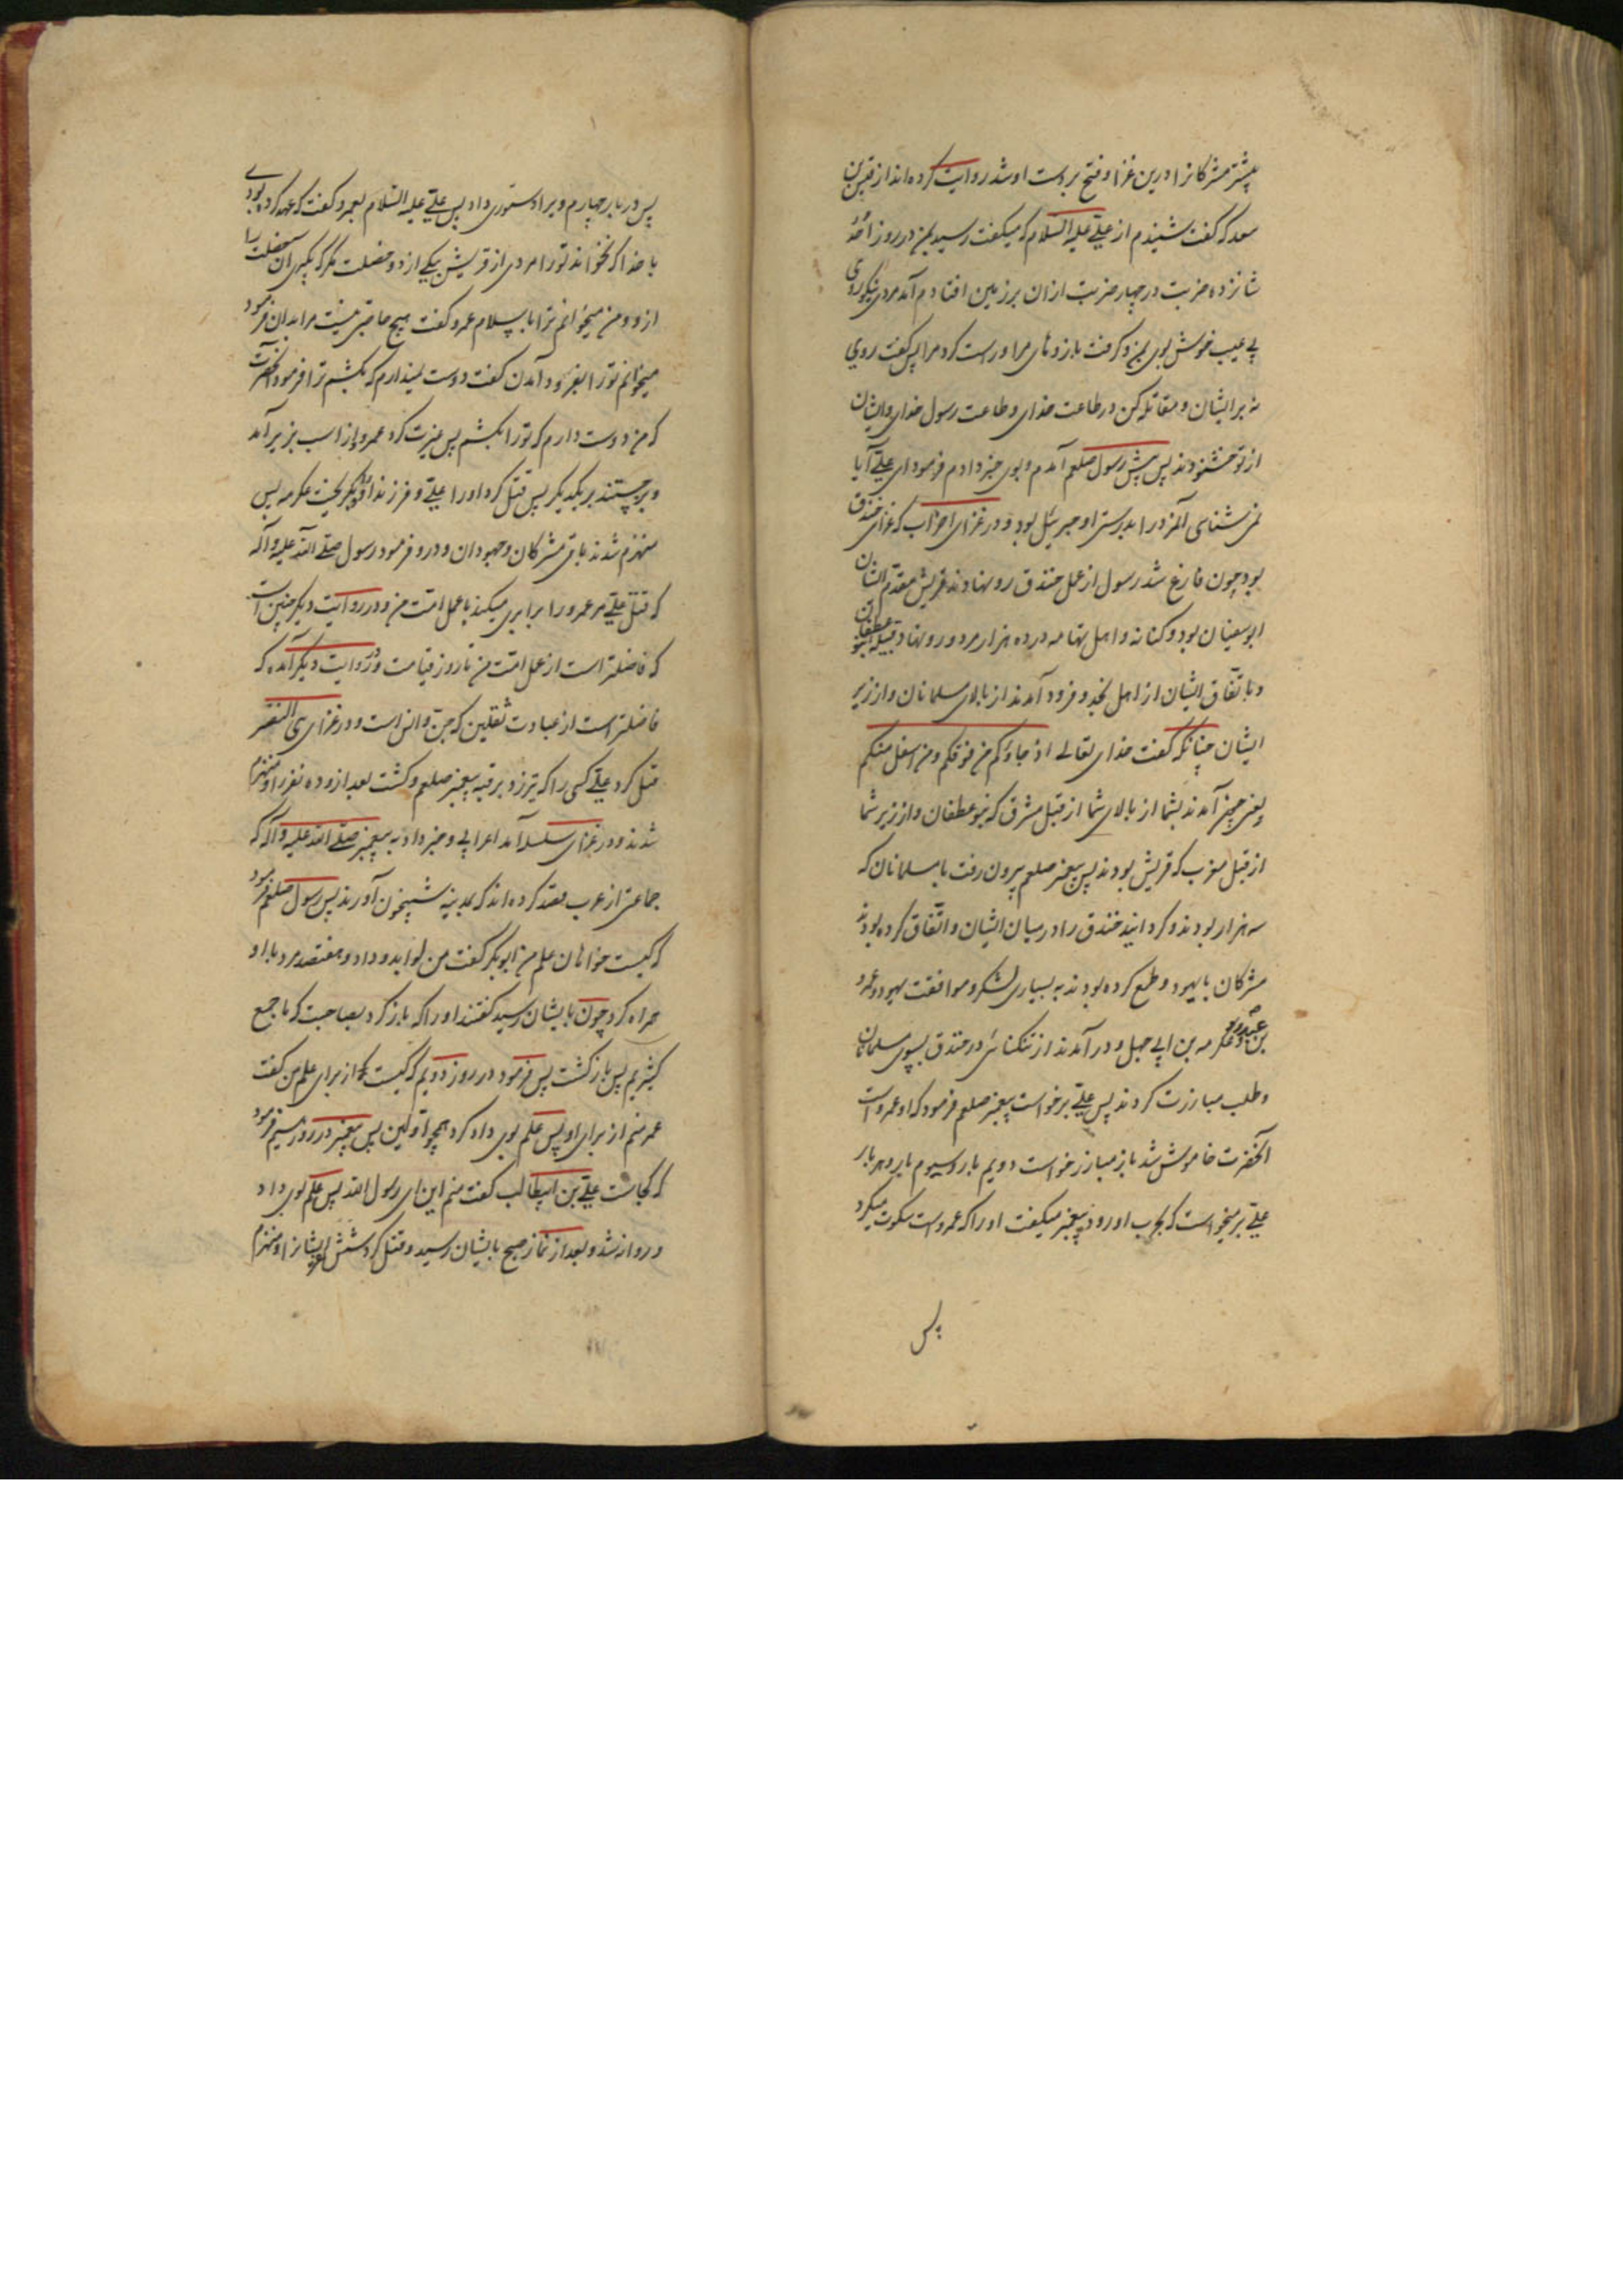 بیشتر مشرکانرا درین غزا و فتح بر دست او شد روایت کرده‌اند از قیس بن
سعد که گفت شنیدم از علی علیه السلام که میکفت رسید بمن در روز احد
شانزده ضربت در چهار ضربت ازان بر زمین افتادم آمد مردی نیکوروی
بی عیب خوش بوی بمن و کرفت بازوهای مرا و راست کرد مرا پس کفت روی
نه بر ایشان و مقاتله کن در طاعت خدای و طاعت رسول خدای و ایشان
از تو خشنودند پس پیش رسول صلعم آمدم و بوی خبر دادم فرمود ای علی آیا
نمی شناسی آنمرد را بدرستی او جبرئیل بود و در غزای احزاب که غزای خندق
بود چون فارغ شد رسول از عمل خندق رو نهادند قریش مقدم ایشان
ابوسفیان بود و کنانه و اهل تهامه در ده هزار مرد و رو نهاد قبیله بنو غطفان
و باتفاق ایشان از اهل نجد و فرود آمدند از بالای مسلمانان و از زیر
ایشان چنانکه کفت خدای تعالی اذ جاؤکم من فوقکم و من اسفل منکم
یعنی چون آمدند بشما از بالای شما از قبل مشرق که بنو غطفان و از زیر شما
از قبل مغرب که قریش بودند پس پیغمبر صلعم بیرون رفت با مسلمانان که
سه هزار بودند و کردانید خندق را در میان ایشان و اتفاق کرده بودند
مشرکان با یهود و طمع کرده بودند به بسیاری لشکر و موافقت یهود و عمرو
بن عبدود و عکرمه بن ابی جهل و در آمدند از تنکنائی در خندق بسوی مسلمانان
و طلب مبارزت کردند پس علی برخواست پیغمبر صلعم فرمود که او عمرو است
آنحضرت خاموش شد باز مبارز خواست دویم بار و سیوم بار و هر بار
علی بر میخواست که بحرب او رود پیغمبر میکفت او را که عمرو است سکوت میکرد
پس
پس در بار چهارم ویرا دستوری داد پس علی علیه السلام بعمرو کفت که عهد کرده بودی
با خدا که نخواند تو را مردی از قریش بیکی از دو خصلت مکر که بگیری آن خصلت را
ازو و من میخوانم ترا باسلام عمرو کفت هیچ حاجتی نیست مرا بدان فرمود
میخوانم تو را بفرود آمدن کفت دوست نمیدارم که بکشم ترا فرمود آنحضرت
که من دوست دارم که تو را بکشم پس غیرت کرد عمرو و از اسب بزیر آمد
و بر جستند بر یکدیکر پس قتل کرد او را علی و فرزند او و بگریخت عکرمه پس
منهزم شدند باقی مشرکان و جهودان و درو فرمود رسول صلی الله علیه و آله
که قتل علی مر عمرو را برابری میکند با عمل امت من و در روایت دیگر چنین است
که فاضلتر است از عمل امت من تا روز قیامت و در روایت دیگر آمده که
فاضلتر است از عبادت ثقلین که جن و انس است و در غزای بنی النضر
قتل کرد علی کسی را که تیر زد بر قبه پیغمبر صلعم و کشت بعد ازو ده نفر را و منهزم
شدند و در غزای سلسله آمد اعرابی و خبر داد به پیغمبر صلی الله علیه و آله که
جماعتی از عرب قصد کرده‌اند که بمدینه شبیخون آورند پس رسول صلعم فرمود
که کیست خواهان علم من ابوبکر کفت من لوا بدو داد و هفتصد مرد با او
همراه کرد چون بایشان رسید کفتند او را که باز کرد بصاحبت که ما جمع
کثیریم پس باز کشت پس فرمود در روز دویم که کیست که از برای علم من کفت
عمر منم از برای او پس علم بوی داد کرد همچو اولین پس پیغمبر در روز سیم فرمود
که کجاست علی بن ابیطالب کفت منم این ای رسول الله پس علم بوی داد
و روانه شد و بعد از نماز صبح بایشان رسید و قتل کرد شش ایشانرا و منهزم